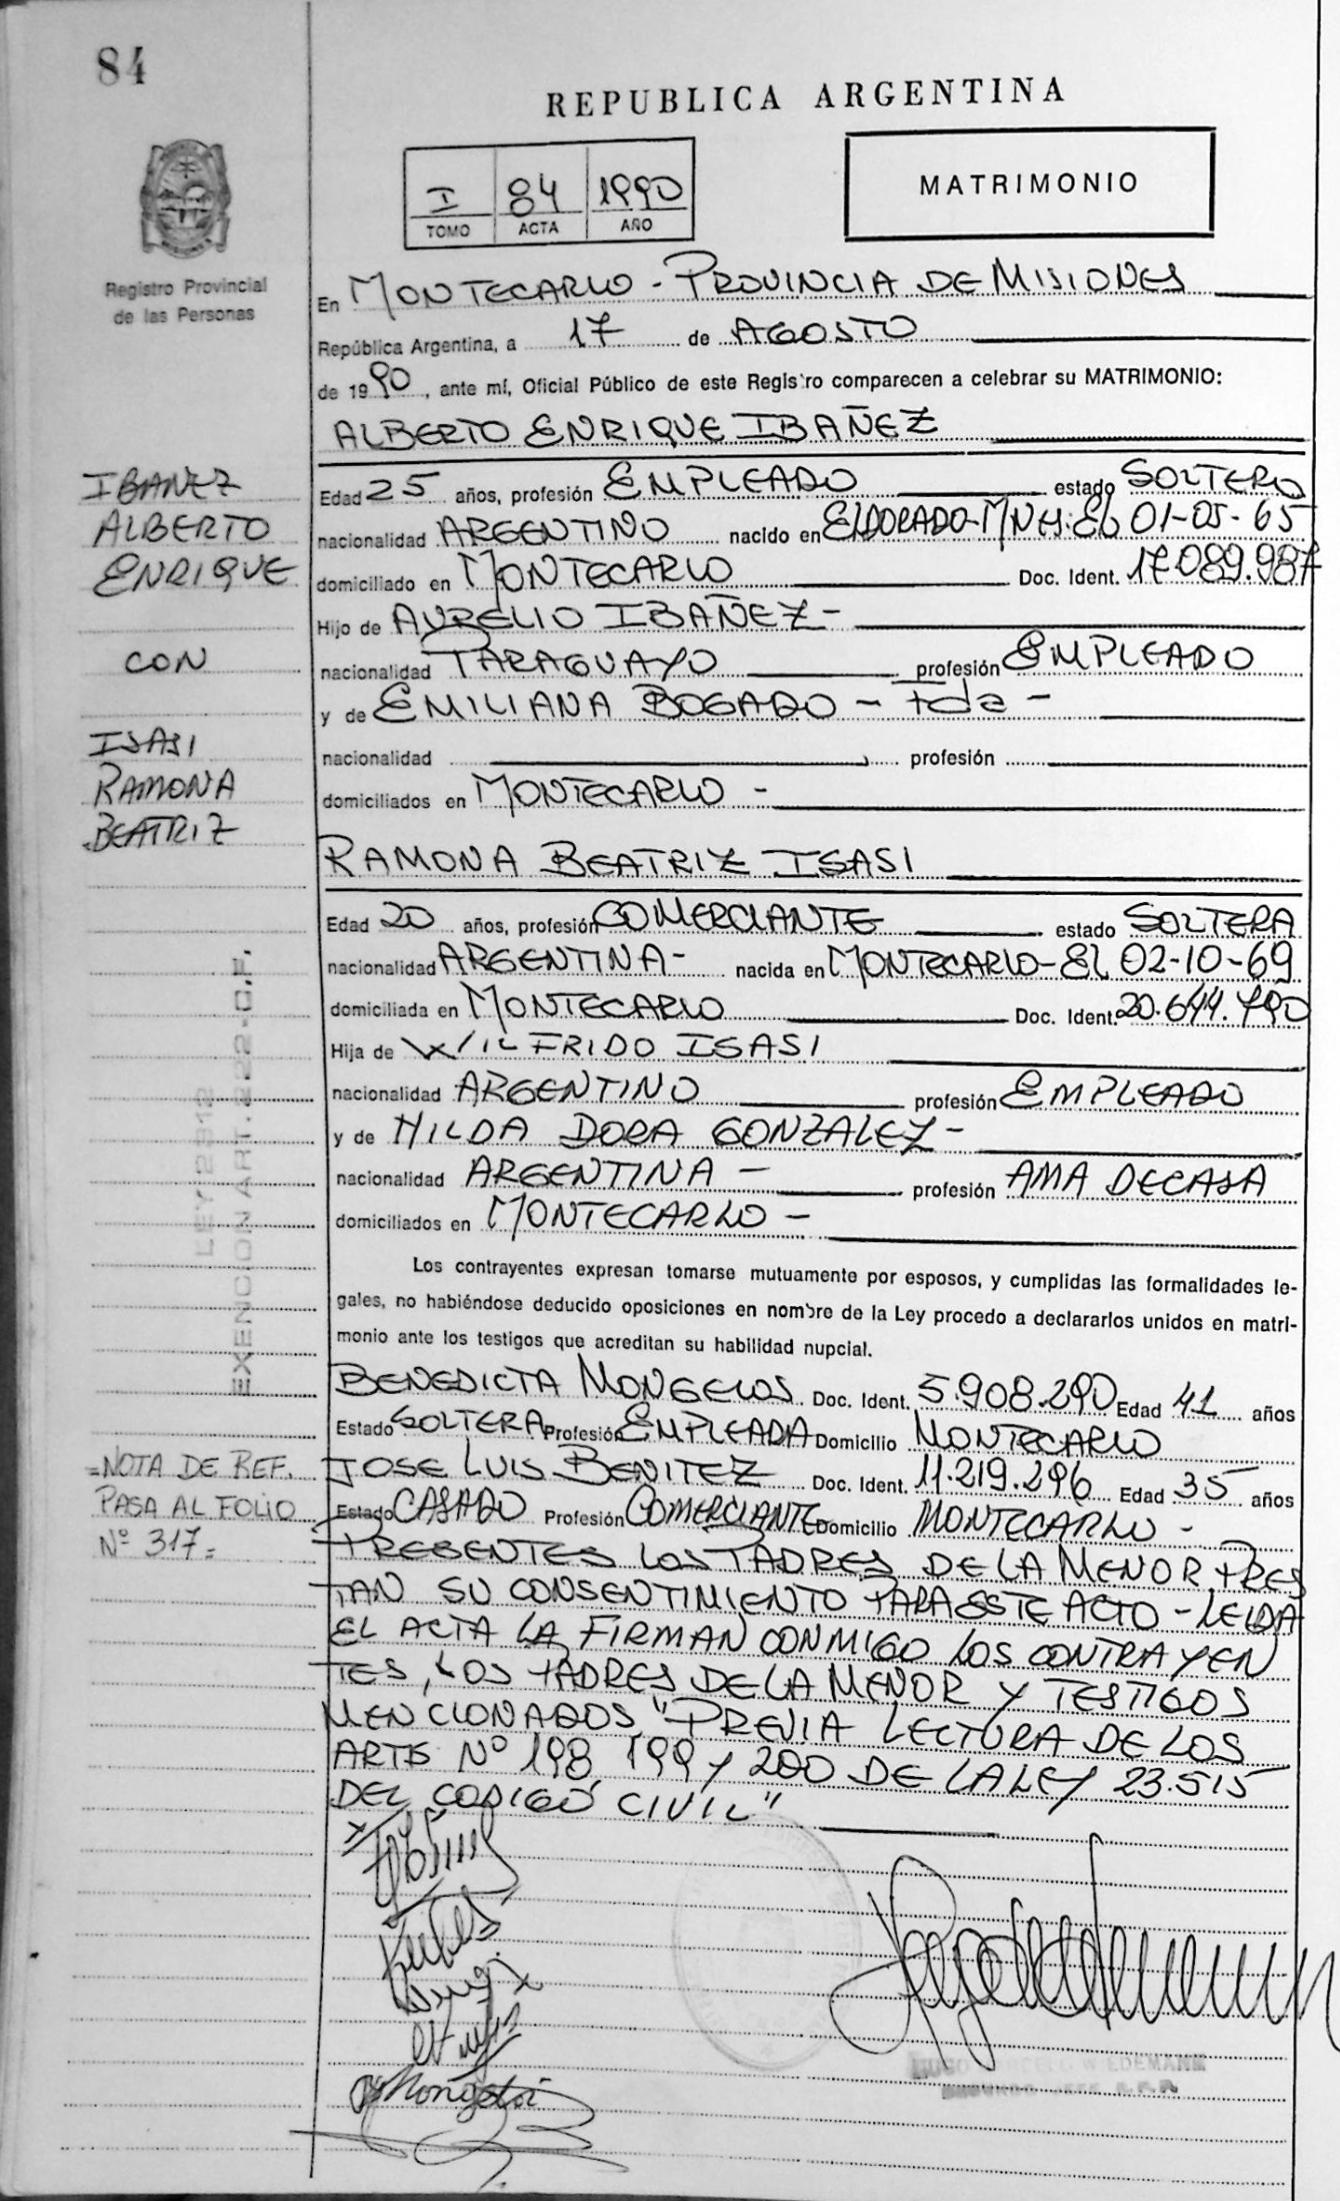 84
REPUBLICA ARGENTINA
I 84 1990
TOMO ACTA AÑO
MATRIMONIO
Registro Provincial
de las Personas
En MONTECARLO - PROVINCIA DE MISIONES
República Argentina, a 17 de AGOSTO
de 1990, ante mí, Oficial Público de este Registro comparecen a celebrar su MATRIMONIO:
ALBERTO ENRIQUE IBAÑEZ
IBAÑEZ
ALBERTO
ENRIQUE
CON
ISASI
RAMONA
BEATRIZ
Edad 25 años, profesión EMPLEADO estado SOLTERO
nacionalidad ARGENTINO nacido en ELDORADO-MNES. EL 01-05-65
domiciliado en MONTECARLO Doc. Ident. 17.089.987
Hijo de AURELIO IBAÑEZ -
nacionalidad PARAGUAYO profesión EMPLEADO
y de EMILIANA BOGADO - Fda -
nacionalidad profesión
domiciliados en MONTECARLO -
RAMONA BEATRIZ ISASI
Edad 20 años, profesión COMERCIANTE estado SOLTERA
nacionalidad ARGENTINA - nacida en MONTECARLO - EL 02-10-69
domiciliada en MONTECARLO Doc. Ident. 20.644.790
Hija de WILFRIDO ISASI
nacionalidad ARGENTINO profesión EMPLEADO
y de HILDA DORA GONZALEZ -
nacionalidad ARGENTINA - profesión AMA DE CASA
domiciliados en MONTECARLO -
EXENCION ART. 222-C.F.
Los contrayentes expresan tomarse mutuamente por esposos, y cumplidas las formalidades le-
gales, no habiéndose deducido oposiciones en nombre de la Ley procedo a declararlos unidos en matri-
monio ante los testigos que acreditan su habilidad nupcial.
BENEDICTA MONGELOS Doc. Ident. 5.908.290 Edad 41 años
Estado SOLTERA Profesión EMPLEADA Domicilio MONTECARLO
JOSE LUIS BENITEZ Doc. Ident. 11.219.296 Edad 35 años
Estado CASADO Profesión COMERCIANTE Domicilio MONTECARLO -
=NOTA DE REF.
PASA AL FOLIO
Nº 317=
PRESENTES LOS PADRES DE LA MENOR PRES
TAN SU CONSENTIMIENTO PARA ESTE ACTO - LEIDA
EL ACTA LA FIRMAN CONMIGO LOS CONTRAYEN
TES, LOS PADRES DE LA MENOR Y TESTIGOS
MENCIONADOS "PREVIA LECTURA DE LOS
ARTS Nº 198 199 y 200 DE LA LEY 23.515
DEL CODIGO CIVIL"